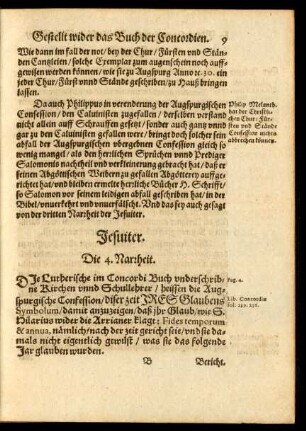 Gestellt wider das Buch der Concordien. 9
Wie dann im fall der not / bey der Chur / Fürsten vnd Stän-
den Cantzleien / solche Exemplar zum augenschein noch auff-
gewisen werden können / wie sie zu Augspurg Anno 1530. ein
jeder Chur / Fürst vnnd Stände geschriben / zu Hauß bringen
lassen.
Da auch Philippus in verenderung der Augspurgischen
Confession / den Caluinisten zugefallen / derselben verstand
nicht allein auff Schrauffen gesetzt / sonder auch gantz vnnd
gar zu den Caluinisten gefallen were / bringt doch solcher sein
abfall der Augspurgischen vbergebnen Confession gleich so
wenig mangel / als den herrlichen Sprüchen vnnd Prediger
Salomonis nachtheil vnd verkleinerung gebracht hat / daß er
seinen Abgöttischen Weibern zu gefallen Abgötterey auffge-
richtet hat / vnd bleiben ermelte herrliche Bücher H. Schrifft /
so Salomon vor seinem leidigen abfall geschriben hat / in der
Bibel / vnuerkehrt vnd vnuerfälscht. Vnd das sey auch gesagt
von der dritten Narrheit der Jesuiter.
Philip. Melanch-
than der Christli-
chen Chur: Für-
sten vnd Stände
Confession nichts
abbrechen können.
Jesuiter.
Die 4. Narrheit.
DIe Lutherische im Concordi Buch vnderschrib-
ne Kirchen vnnd Schullehrer / heissen die Aug-
spurgische Confession / diser zeit JRES Glaubens
Symbolum / damit anzuzeigen / daß jhr Glaub / wie S.
Hilarius wider die Arrianer klagt: Fides temporum
& annua, nämlich / nach der zeit gericht seie / vnd sie da-
mals nicht eigentlich gewüst / was sie das folgende
Jar glauben wurden.
Pag. 4.
Lib. Concordiæ
B Bericht.